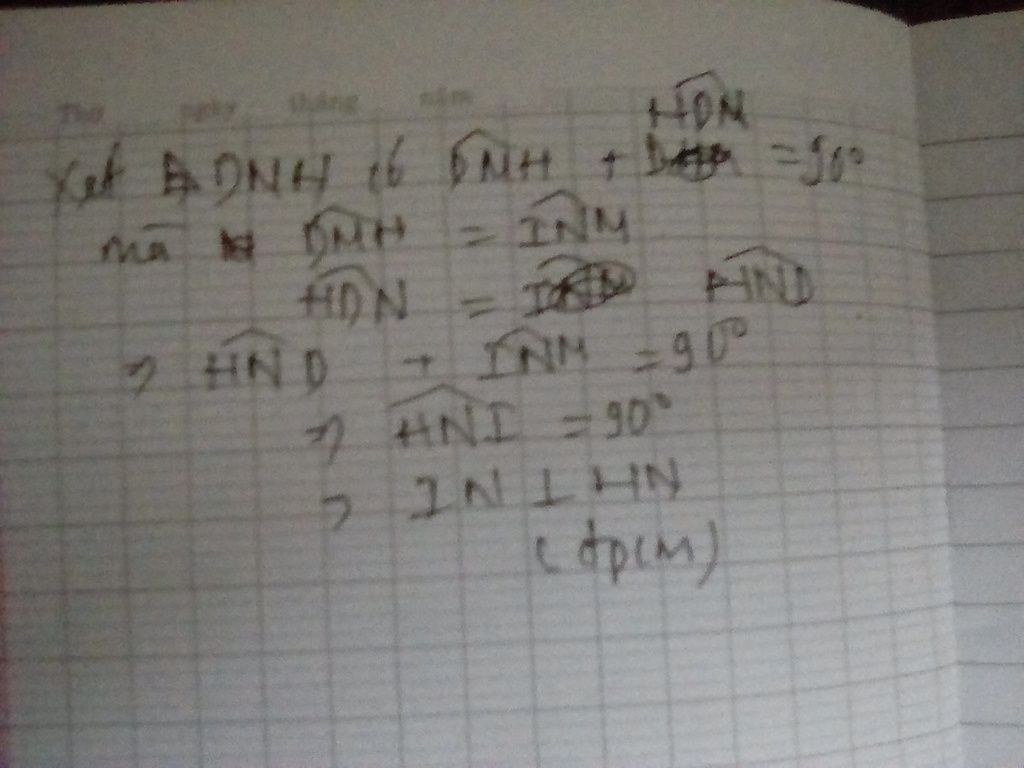 Thứ ngày tháng năm
HDN
Xét DNH có DNH + = 90°
mà DMH = INM
HDN = HND
=> HND + INM = 90°
=> HNI = 90°
=> IN ⊥ HN
(đpcm)